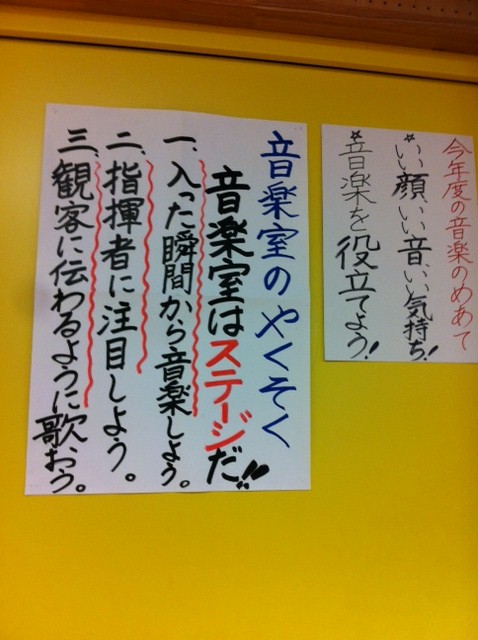 今年度の音楽のめあて
☆いい顔、いい音、いい気持ち!
☆音楽を役立てよう!
音楽室のやくそく
音楽室はステージだ!!
一、入った瞬間から音楽しよう。
二、指揮者に注目しよう。
三、観客に伝わるように歌おう。